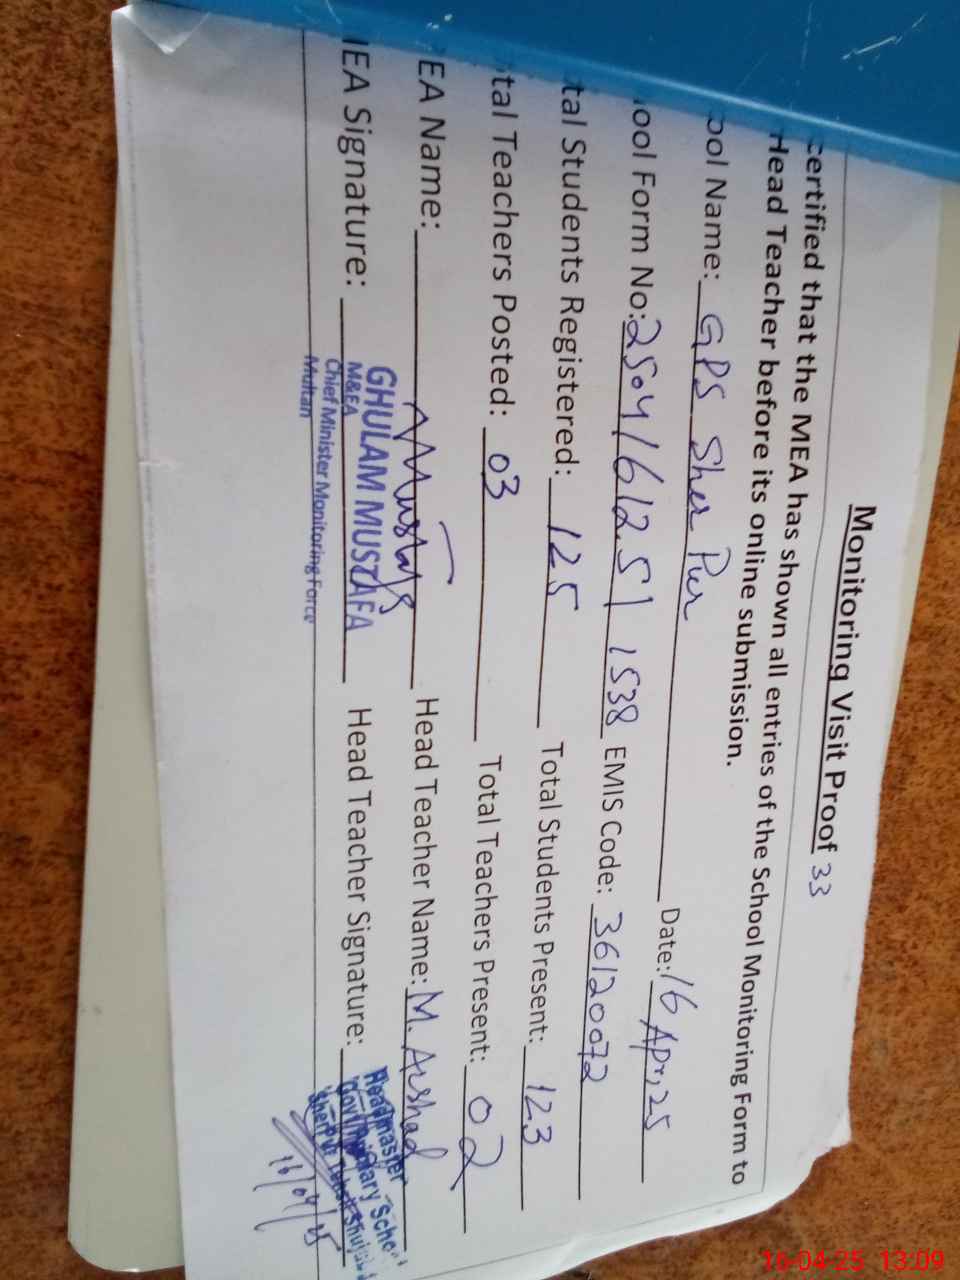 Monitoring Visit Proof 33
certified that the MEA has shown all entries of the School Monitoring Form to
Head Teacher before its online submission.
ool Name: GPS Sher Pur Date: 16 Apr, 25
ool Form No: 2504/61251 1538 EMIS Code: 36120072
tal Students Registered: 125 Total Students Present: 123
tal Teachers Posted: 03 Total Teachers Present: 02
EA Name: Head Teacher Name: M. Arshad
EA Signature: Head Teacher Signature:
GHULAM MUSTAFA
M&EA
Chief Minister Monitoring Force
Multan
Headmaster
Govt Primary Schoo
16/04/25
16-04-25 13:09